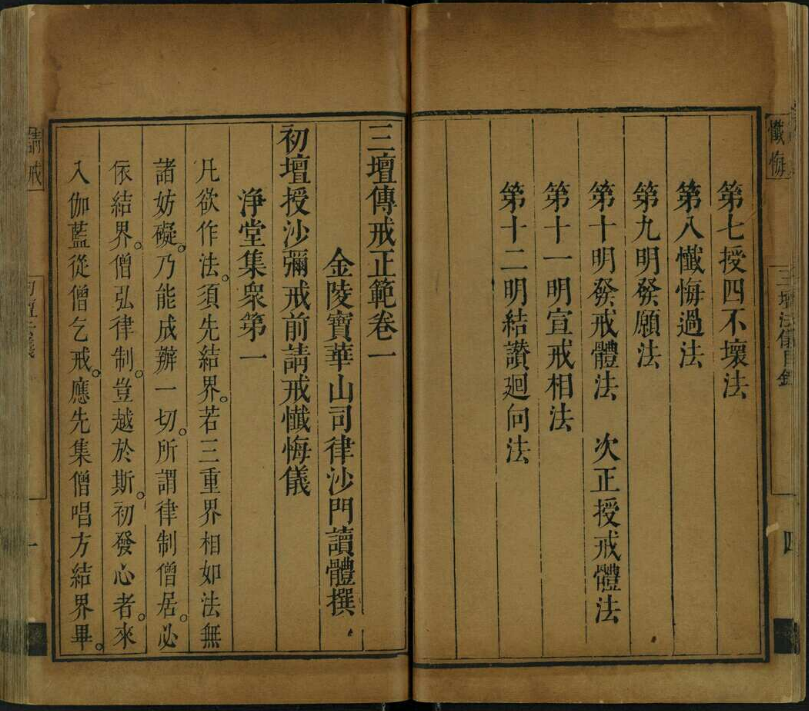 懺悔
第七授四不壞法
第八懺悔過法
第九明發願法
第十明發戒體法　次正授戒體法
第十一明宣戒相法
第十二明結讚廻向法
三壇傳戒正範卷一
金陵寶華山司律沙門讀體撰
初壇授沙彌戒前請戒懺悔儀
淨堂集衆第一
凡欲作法。須先結界。若三重界相如法無
諸妨礙。乃能成辦一切。所謂律制僧居。必
依結界。僧弘律制。豈越於斯。初發心者。來
入伽藍從僧乞戒。應先集僧唱方結界畢。
請戒
一